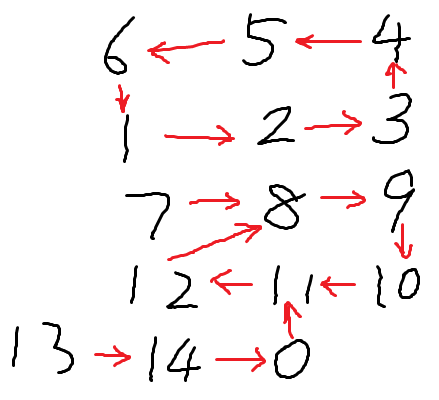 6 5 4
1 2 3
7 8 9
12 11 10
13 14 0